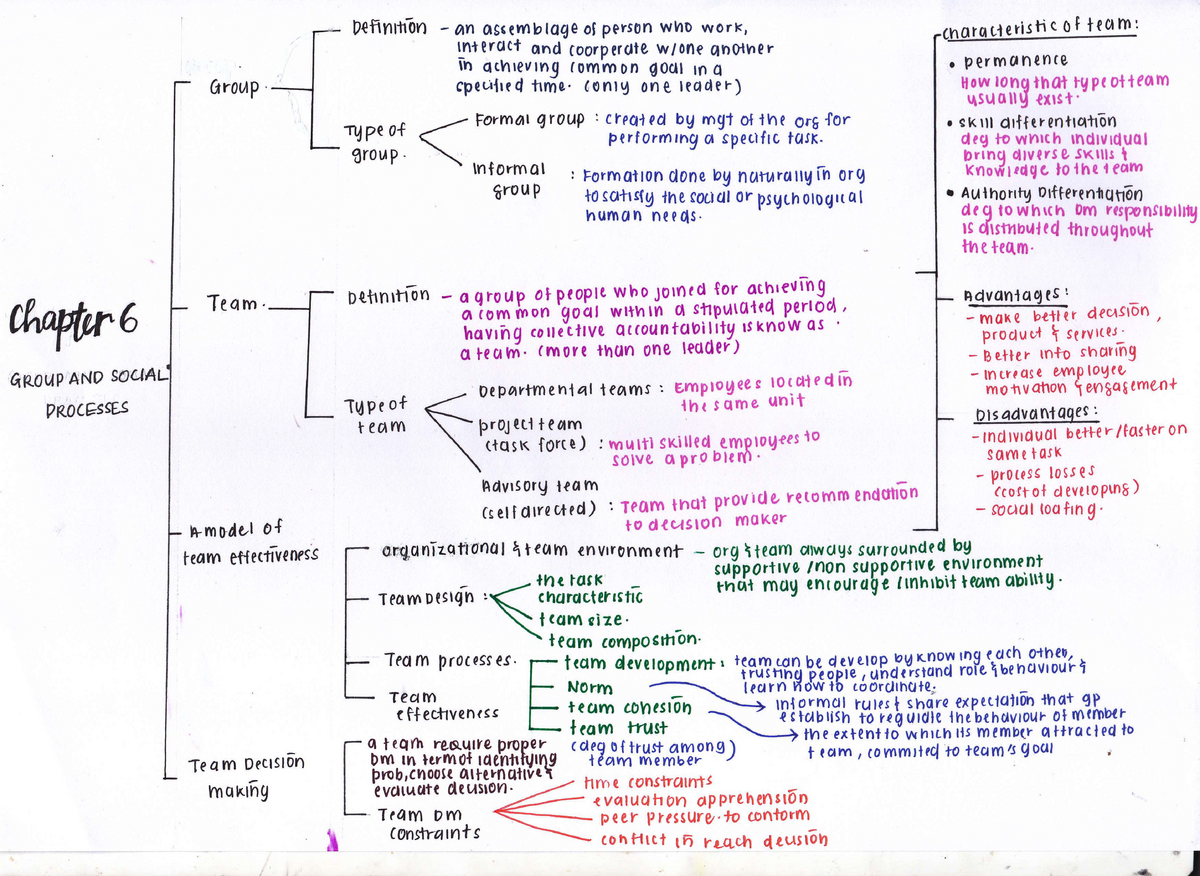 Chapter 6
GROUP AND SOCIAL
PROCESSES
Group.
Definition - an assemblage of person who work,
interact and coorperate w/one another
in achieving common goal in a
specified time. (only one leader)
Type of
group.
Formal group : created by mgt of the org for
performing a specific task.
Informal
group
: Formation done by naturally in org
to satisfy the social or psychological
human needs.
Team.
Definition - a group of people who joined for achieving
a common goal within a stipulated period,
having collective accountability is know as
a team. (more than one leader)
Type of
team
Departmental teams : Employees located in
the same unit
project team
(task force) : multi skilled employees to
solve a problem.
Advisory team
(self directed) : Team that provide recommendation
to decision maker
characteristic of team:
• permanence
How long that type of team
usually exist.
• skill differentiation
deg to which individual
bring diverse skills &
knowledge to the team
• Authority Differentiation
deg to which DM responsibility
is distributed throughout
the team.
Advantages:
- make better decision,
product & services.
- Better info sharing
- Increase employee
motivation & engagement
Disadvantages:
- Individual better/faster on
same task
- process losses
(cost of developing)
- social loafing.
A model of
team effectiveness
organizational & team environment - org & team always surrounded by
supportive/non supportive environment
that may encourage/inhibit team ability.
Team Design :
the task
characteristic
team size.
team composition.
Team processes.
Team
effectiveness
team development : team can be develop by knowing each other,
trusting people, understand role & behaviour &
learn how to coordinate.
Norm
informal rules & share expectation that gp
establish to regulate the behaviour of member
team cohesion
the extent to which its member attracted to
team, commited to team's goal
team trust
(deg of trust among)
team member
Team Decision
making
a team require proper
DM in term of identifying
prob, choose alternative &
evaluate decision.
Team DM
constraints
time constraints
evaluation apprehension
peer pressure. to conform
conflict in reach decision